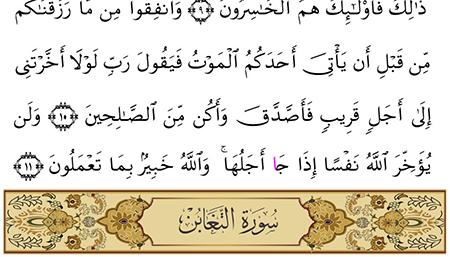 ذَٰلِكَ فَأُوْلَٰٓئِكَ هُمُ ٱلْخَٰسِرُونَ ﴿٩﴾ وَأَنفِقُوا۟ مِن مَّا رَزَقْنَٰكُم
مِّن قَبْلِ أَن يَأْتِىَ أَحَدَكُمُ ٱلْمَوْتُ فَيَقُولَ رَبِّ لَوْلَآ أَخَّرْتَنِىٓ
إِلَىٰٓ أَجَلٍ قَرِيبٍ فَأَصَّدَّقَ وَأَكُن مِّنَ ٱلصَّٰلِحِينَ ﴿١٠﴾ وَلَن
يُؤَخِّرَ ٱللَّهُ نَفْسًا إِذَا جَا أَجَلُهَا ۚ وَٱللَّهُ خَبِيرٌۢ بِمَا تَعْمَلُونَ ﴿١١﴾
سُورَةُ التَّغَابُنِ